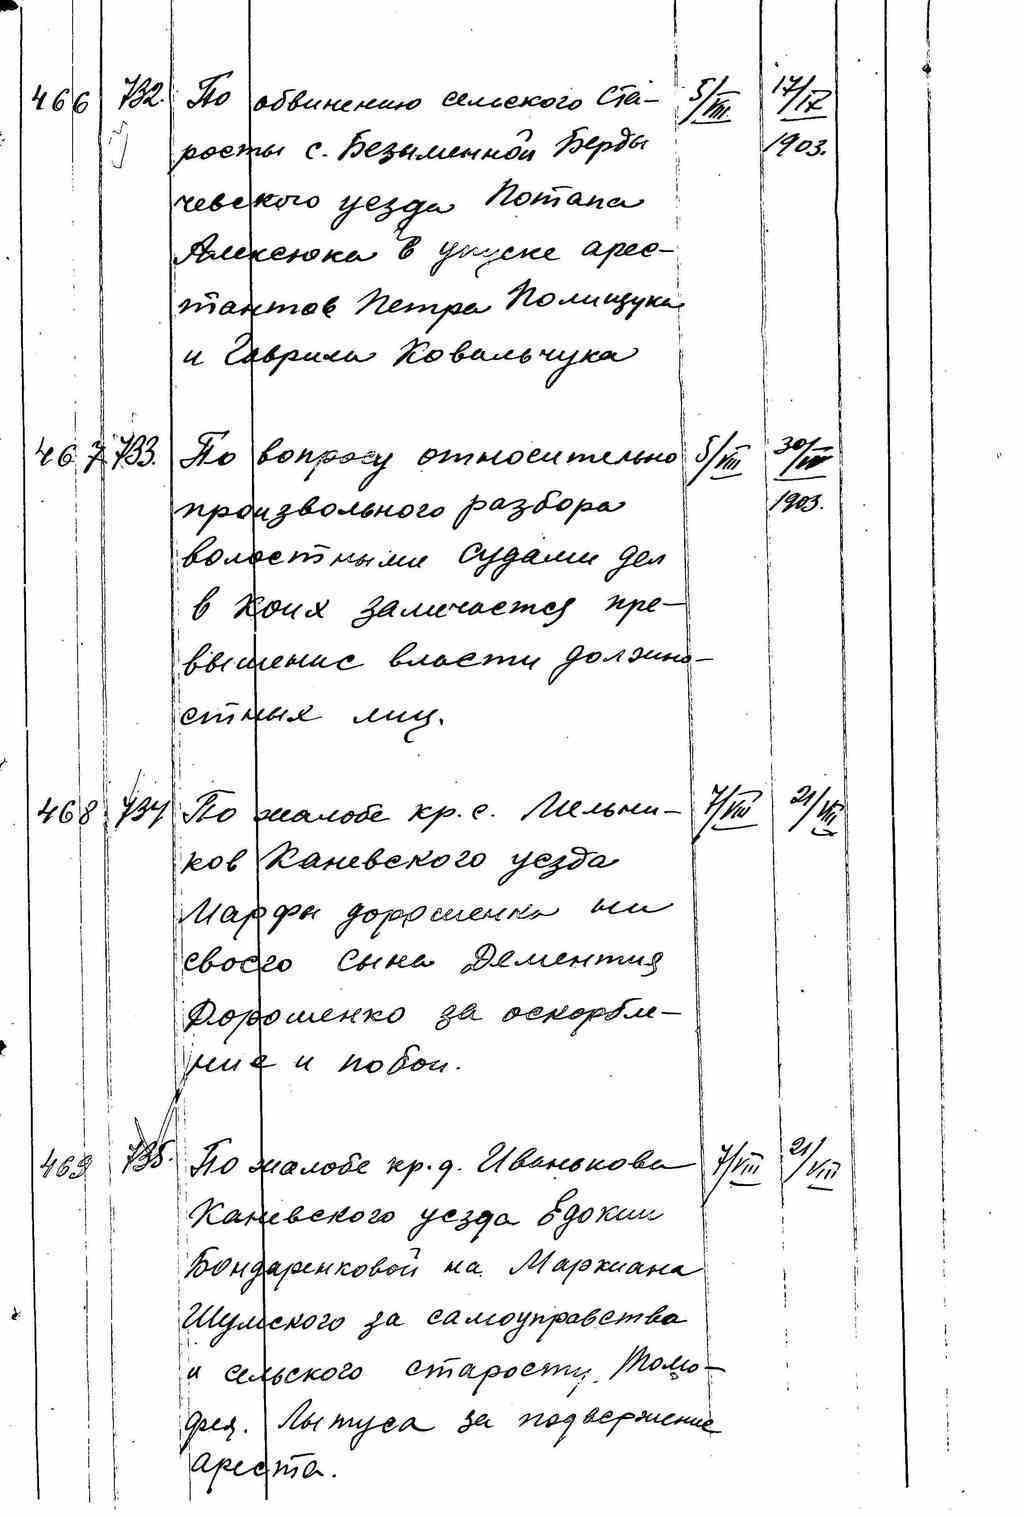 466 732. По обвинению сельского ста- 5/VIII. 17/IV
росты с. Безыменной Берды 1903.
чевского уезда Потапа
Алексюка в упуске арес-
тантов Петра Полищука
и Гаврила Ковальчука
467 733. По вопросу относительно 5/VIII 30/
произвольного разбора 1903.
волостными судами дел
в коих замечается пре-
вышение власти должно-
стных лиц.
468 734 По жалобе кр. с. Мельни- 7/VIII 21/VIII
ков Каневского уезда
Марфы Дорошенко на
своего сына Дементия
Дорошенко за оскорбле-
ние и побои.
469 735. По жалобе кр. д. Иванькова 7/VIII 21/VIII
Каневского уезда Евдокии
Бондаренковой на Маркиана
Шумского за самоуправства
и сельского старосту Тимо-
фея. Лытуса за подвержение
ареста.